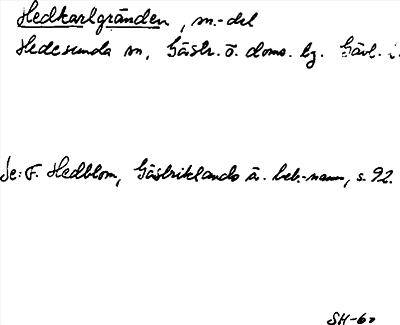 Hedkarlgränden, sn.-del
Hedesunda sn, Gästr. ö. doms. bg. Gävl. l.
Se: F. Hedblom, Gästriklands ä. beb.-namn, s. 92.
SH-60